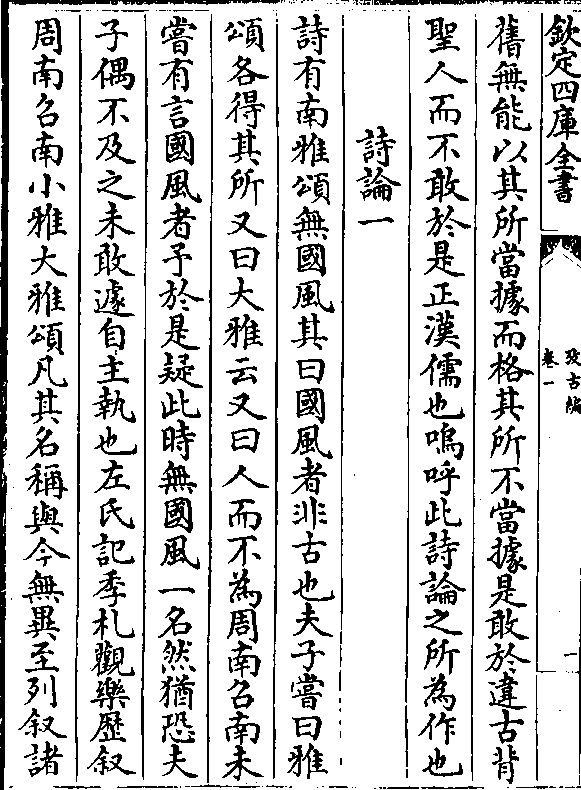 欽定四庫全書
攷古編
卷一
一
舊無能以其所當據而格其所不當據是敢於違古背
聖人而不敢於是正漢儒也嗚呼此詩論之所為作也
詩論一
詩有南雅頌無國風其曰國風者非古也夫子嘗曰雅
頌各得其所又曰大雅云又曰人而不為周南召南未
嘗有言國風者予於是疑此時無國風一名然猶恐夫
子偶不及之未敢遽自主執也左氏記季札觀樂歷叙
周南召南小雅大雅頌凡其名稱與今無異至列叙諸